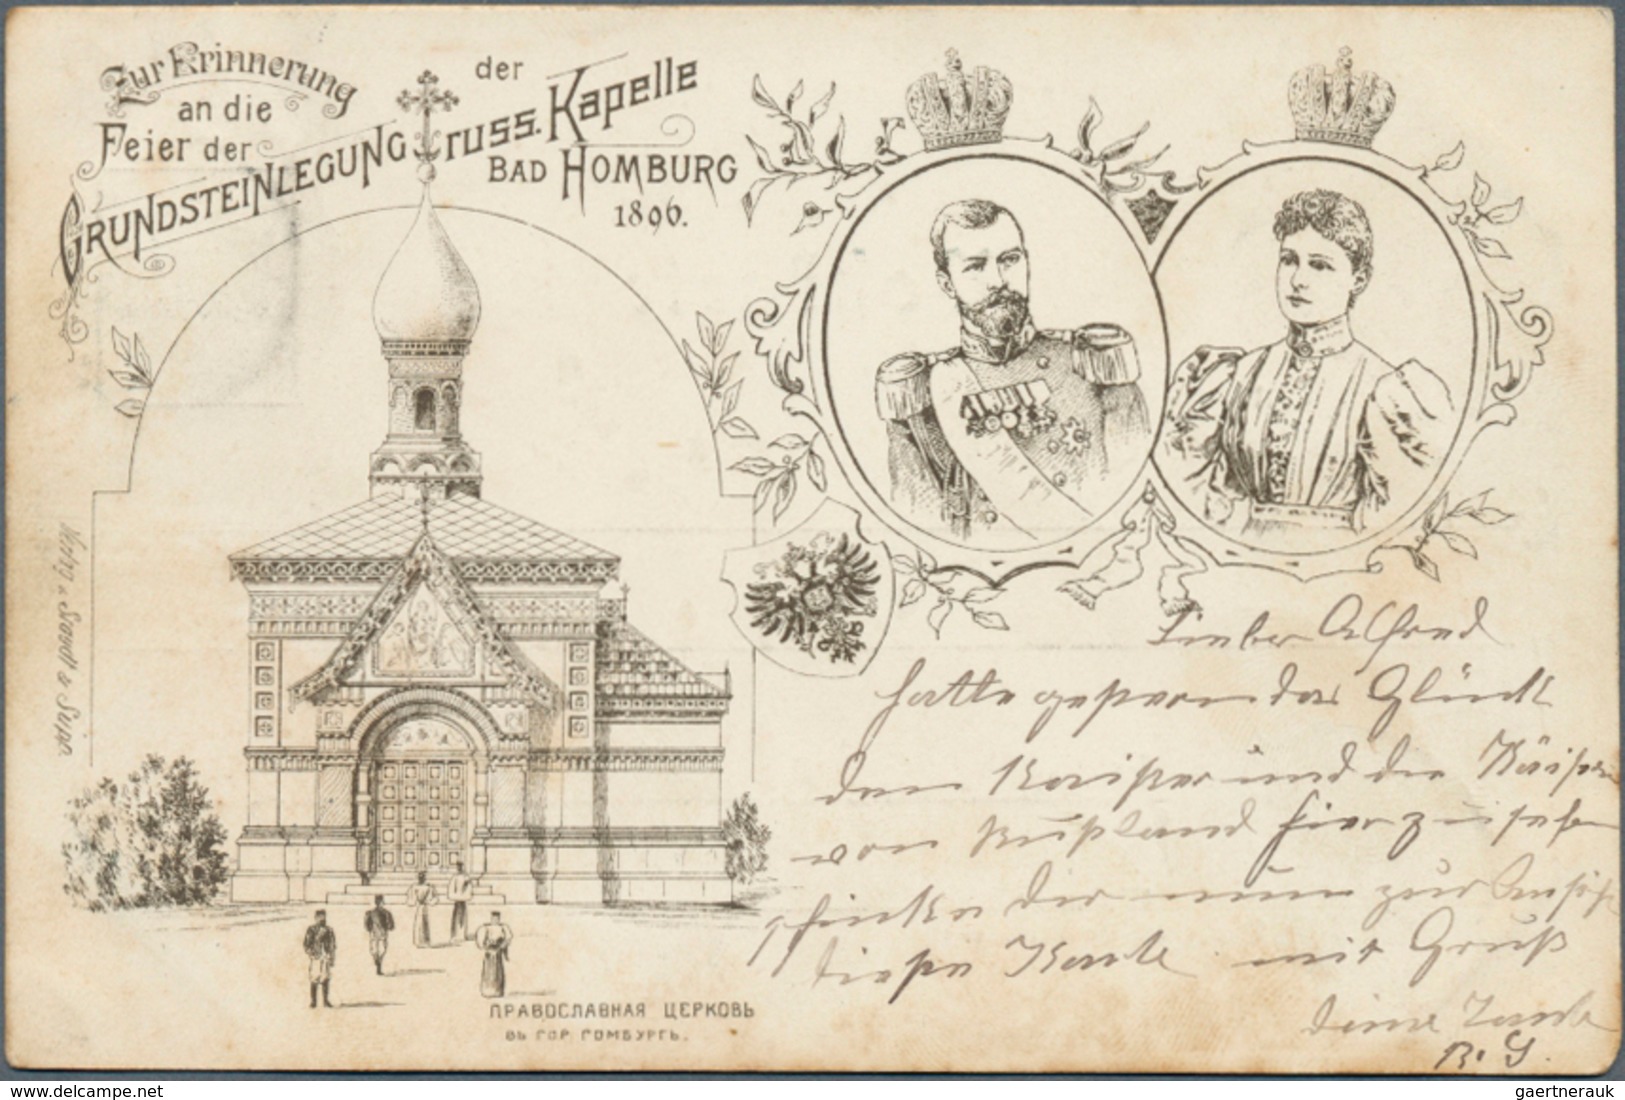 Zur Erinnerung
an die
Feier der
GRUNDSTEINLEGUNG
der
russ. Kapelle
BAD HOMBURG
1896.
Lieber Alfred
hatte gestern das Glück
den Kaiser und die Kaiserin
von Rußland hier zu sehen
schicke dir nun zur Ansicht
diese Karte mit Gruß
deine Tante
ПРАВОСЛАВНАЯ ЦЕРКОВЬ
ВЪ ГОР. ГОМБУРГЪ.
gaertnerauk